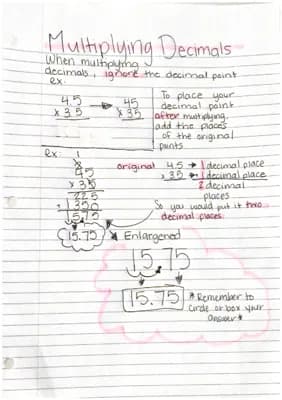 Multiplying Decimals
When multiplying
decimals, ignore the decimal point
ex:
4.5 → 45
x 3.5 x 35
To place your
decimal point
after multiplying,
add the places
of the original
points
ex:
1
2
45
x 35
225
+ 1350
1575
15.75
original 4.5 → 1 decimal place
x 3.5 → 1 decimal place
2 decimal
places
So you would put it two
decimal places.
Enlargened
15.75
15.75
*Remember to
circle or box your
answer*